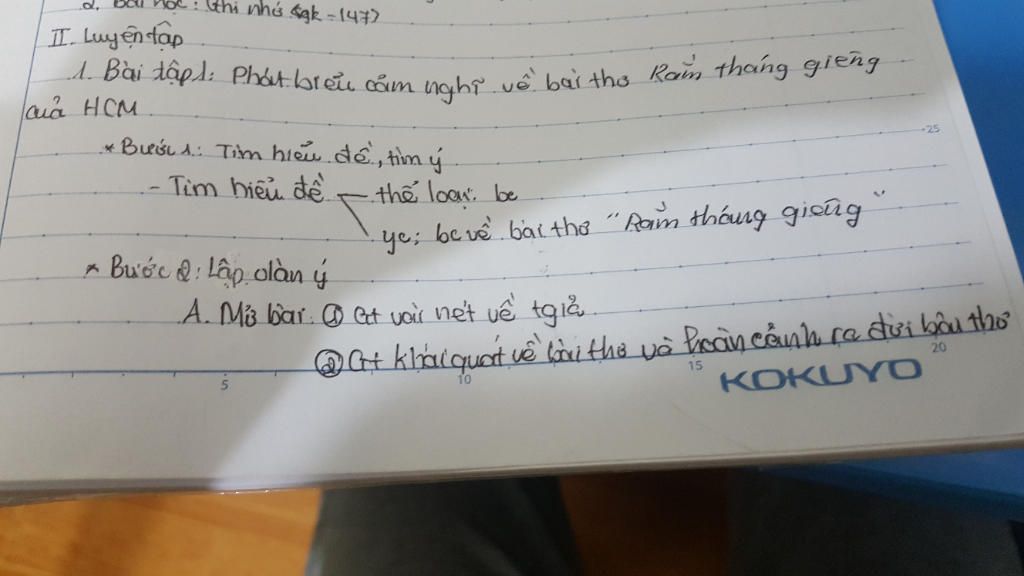 2. Bài học: (Ghi nhớ sgk - 147)
II. Luyện tập
1. Bài tập 1: Phát biểu cảm nghĩ về bài thơ Rằm tháng giêng
của HCM
25
* Bước 1: Tìm hiểu đề, tìm ý
- Tìm hiểu đề — thể loại: bc
yc: bc về bài thơ "Rằm tháng giêng"
* Bước 2: Lập dàn ý
A. Mở bài: ① Gt vài nét về tgiả
② Gt khái quát về bài thơ và hoàn cảnh ra đời bài thơ
5 10 15 20
KOKUYO